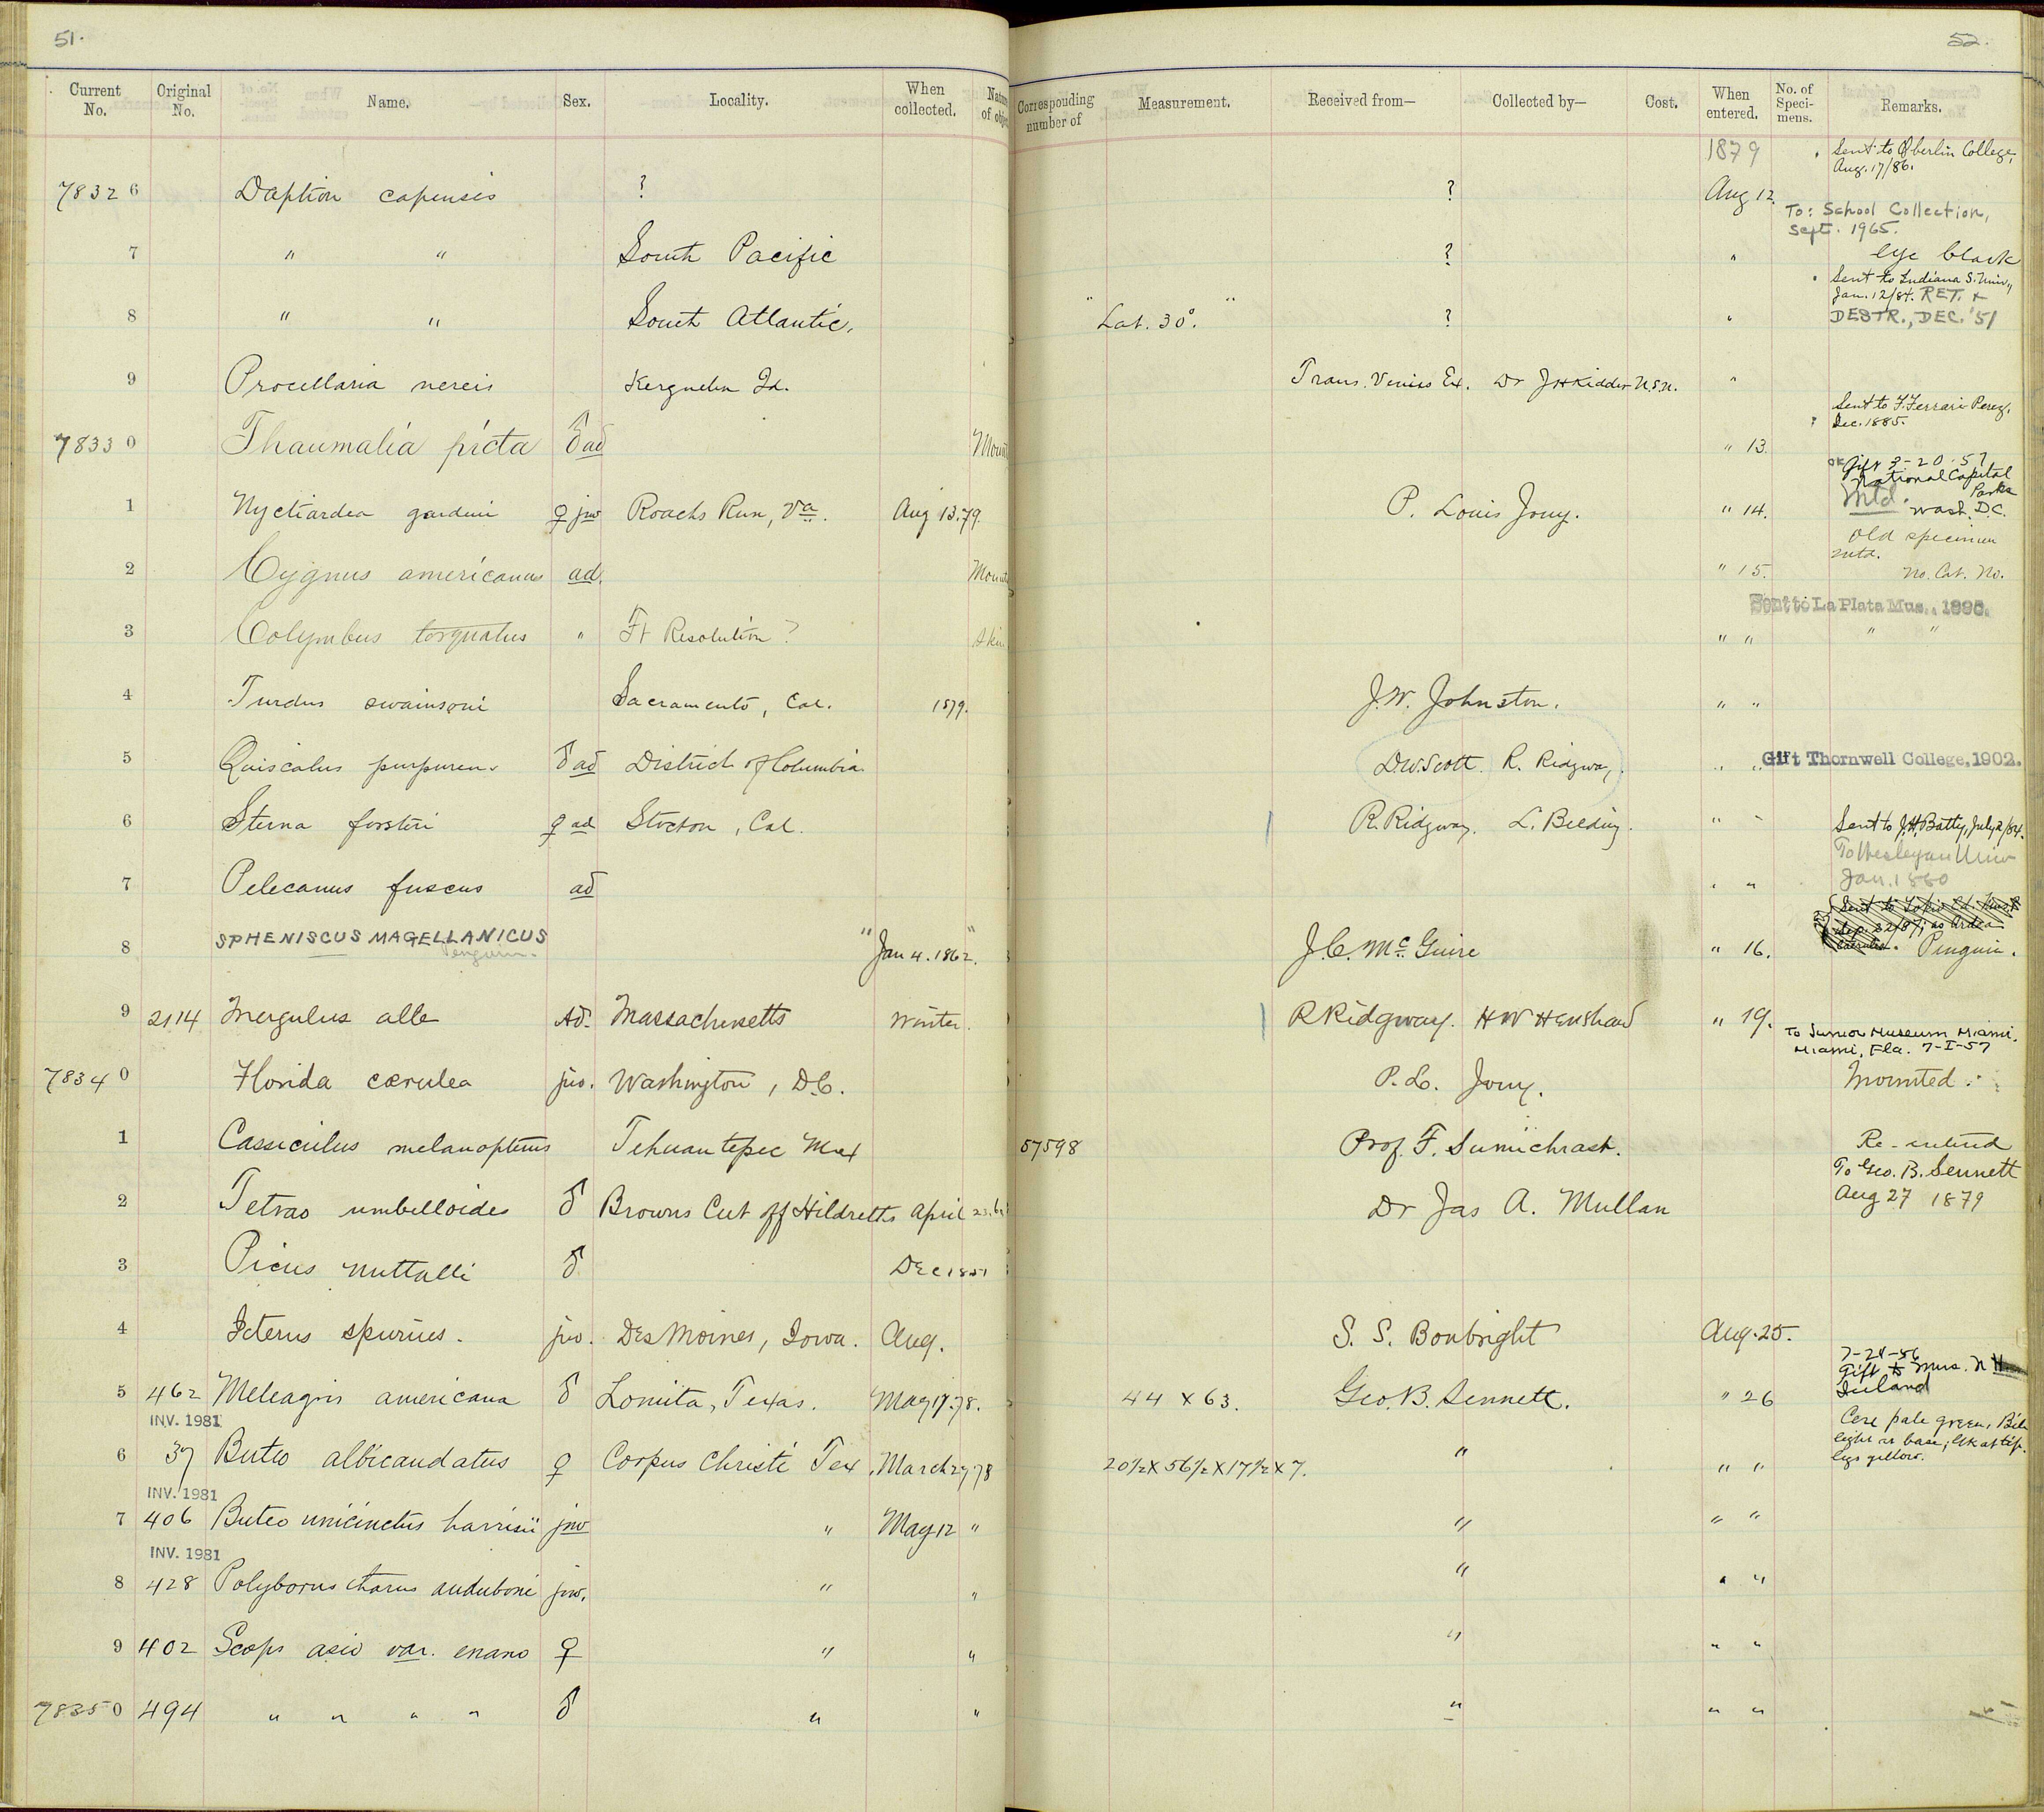 51.
52.
Current No. Original No. Name. Sex. Locality. When collected. Corresponding number of Measurement. Received from— Collected by— Cost. When entered. No. of Speci-mens. Remarks.
1879 Sent to Oberlin College, Aug. 17/86.
78326 Daption capensis ? ? Aug 12.
To: School Collection, Sept. 1965.
7 " " South Pacific ? " eye black
Sent to Indiana S. Univ., Jan. 12/84. RET. + DESTR., DEC. '51
8 " " South Atlantic. "Lat. 30°." ? "
9 Procellaria nereis Kerguelen Id. Trans. Venus Ex. Dr J H Kidder U.S.N. "
Sent to F. Ferrari Perez, Dec. 1885.
78330 Thaumalia picta ♂ ad Mount " 13.
OK Gift 3-20-57 National Capital Parks Wash. D.C.
1 Nyctiardea gardeni ♀ juv Roachs Run, Va. Aug 13.79. P. Louis Jouy. " 14. Mtd.
2 Cygnus americanus ad. Mount " 15. Old specimen mtd. No. Cat. No.
Sent to La Plata Mus.,
3 Colymbus torquatus " Ft Resolution? Skin " " " "
4 Turdus swainsoni Sacramento, Cal. 1879. J. W. Johnston. " "
5 Quiscalus purpureus ♂ ad District of Columbia D.W. Scott. R. Ridgway. " " Gift Thornwell College, 1902.
6 Sterna forsteri ♀ ad Stockton, Cal. R. Ridgway. L. Belding. " " Sent to J. H. Batty, July 2/84.
To Wesleyan Univ Jan. 1880
7 Pelecanus fuscus ad " "
8 SPHENISCUS MAGELLANICUS Penguin. "Jan 4. 1862." J. C. McGuire " 16. Penguin.
9 2114 Mergulus alle Ad. Massachusetts Winter. R Ridgway. H W Henshaw " 19.
To Junior Museum Miami, Miami, Fla. 7-I-57
78340 Florida cærulea juv. Washington, D.C. P. L. Jouy. Mounted.
1 Cassiculus melanopterus Tehuantepec Mex 57598 Prof. F. Sumichrast. Re-entered
To Geo. B. Sennett Aug 27 1879
2 Tetrao umbelloides ♂ Browns Cut off Hildreths April Dr Jas A. Mullan
3 Picus nuttalli ♂ Dec
4 Icterus spurius. juv. Des Moines, Iowa. Aug. S. S. Bonbright Aug. 25.
7-24-56 Gift to Mrs. N H Ireland
5 462 Meleagris americana ♂ Lomita, Texas. May 17.78. 44 x 63. Geo. B. Sennett. " 26
INV. 1981
Cere pale green, Bill light at base; blk at tip. legs yellow.
6 37 Buteo albicaudatus ♀ Corpus Christi Tex. March 29 78 20½ x 56½ x 17½ x 7. " " "
INV. 1981
7 406 Buteo unicinctus harrisii juv " May 12 " " " "
INV. 1981
8 428 Polyborus tharus auduboni juv. " " " " "
9 402 Scops asio var. enano ♀ " " " " "
78350 494 " " " " ♂ " " " " "